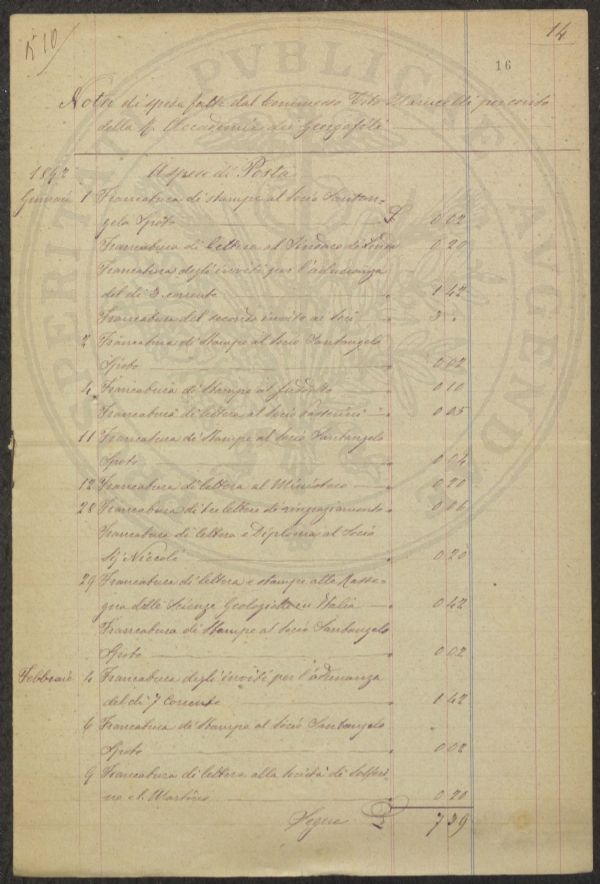 N° 10
14
16
Nota di spese fatte dal Commesso Tito Marucelli per conto
della R. Accademia dei Georgofili
1892 Spese di Posta
Gennaio 1 Francatura di stampe al Socio Santan-
gelo Spoto £ 0 02
Francatura di lettera al Sindaco di 0 20
Francatura degli inviti per l'adunanza
del dì 3 corrente " 1 42
Francatura del secondo invito ai Soci " 3 "
2 Francatura di Stampe al Socio Santangelo
Spoto " 0 02
4 Francatura di Stampe al suddetto " 0 10
Francatura di lettera al Socio " 0 05
11 Francatura di Stampe al Socio Santangelo
Spoto " 0 04
12 Francatura di lettera al Ministero " 0 20
28 Francatura di tre lettere di ringraziamento " 0 06
Francatura di lettera e Diploma al Socio
Sig Niccoli " 0 20
29 Francatura di lettera e stampe alla Rasse-
gna delle Scienze Geologiche in Italia " 0 42
Francatura di Stampe al Socio Santangelo
Spoto " 0 02
Febbraio 4 Francatura degli inviti per l'adunanza
del dì 7 Corrente " 1 42
6 Francatura di Stampe al Socio Santangelo
Spoto " 0 02
9 Francatura di lettera alla Società di Solferi-
no e S. Martino " 0 20
Segue £ 7 39
PROSPERITATI PVBLICAE AVGENDAE